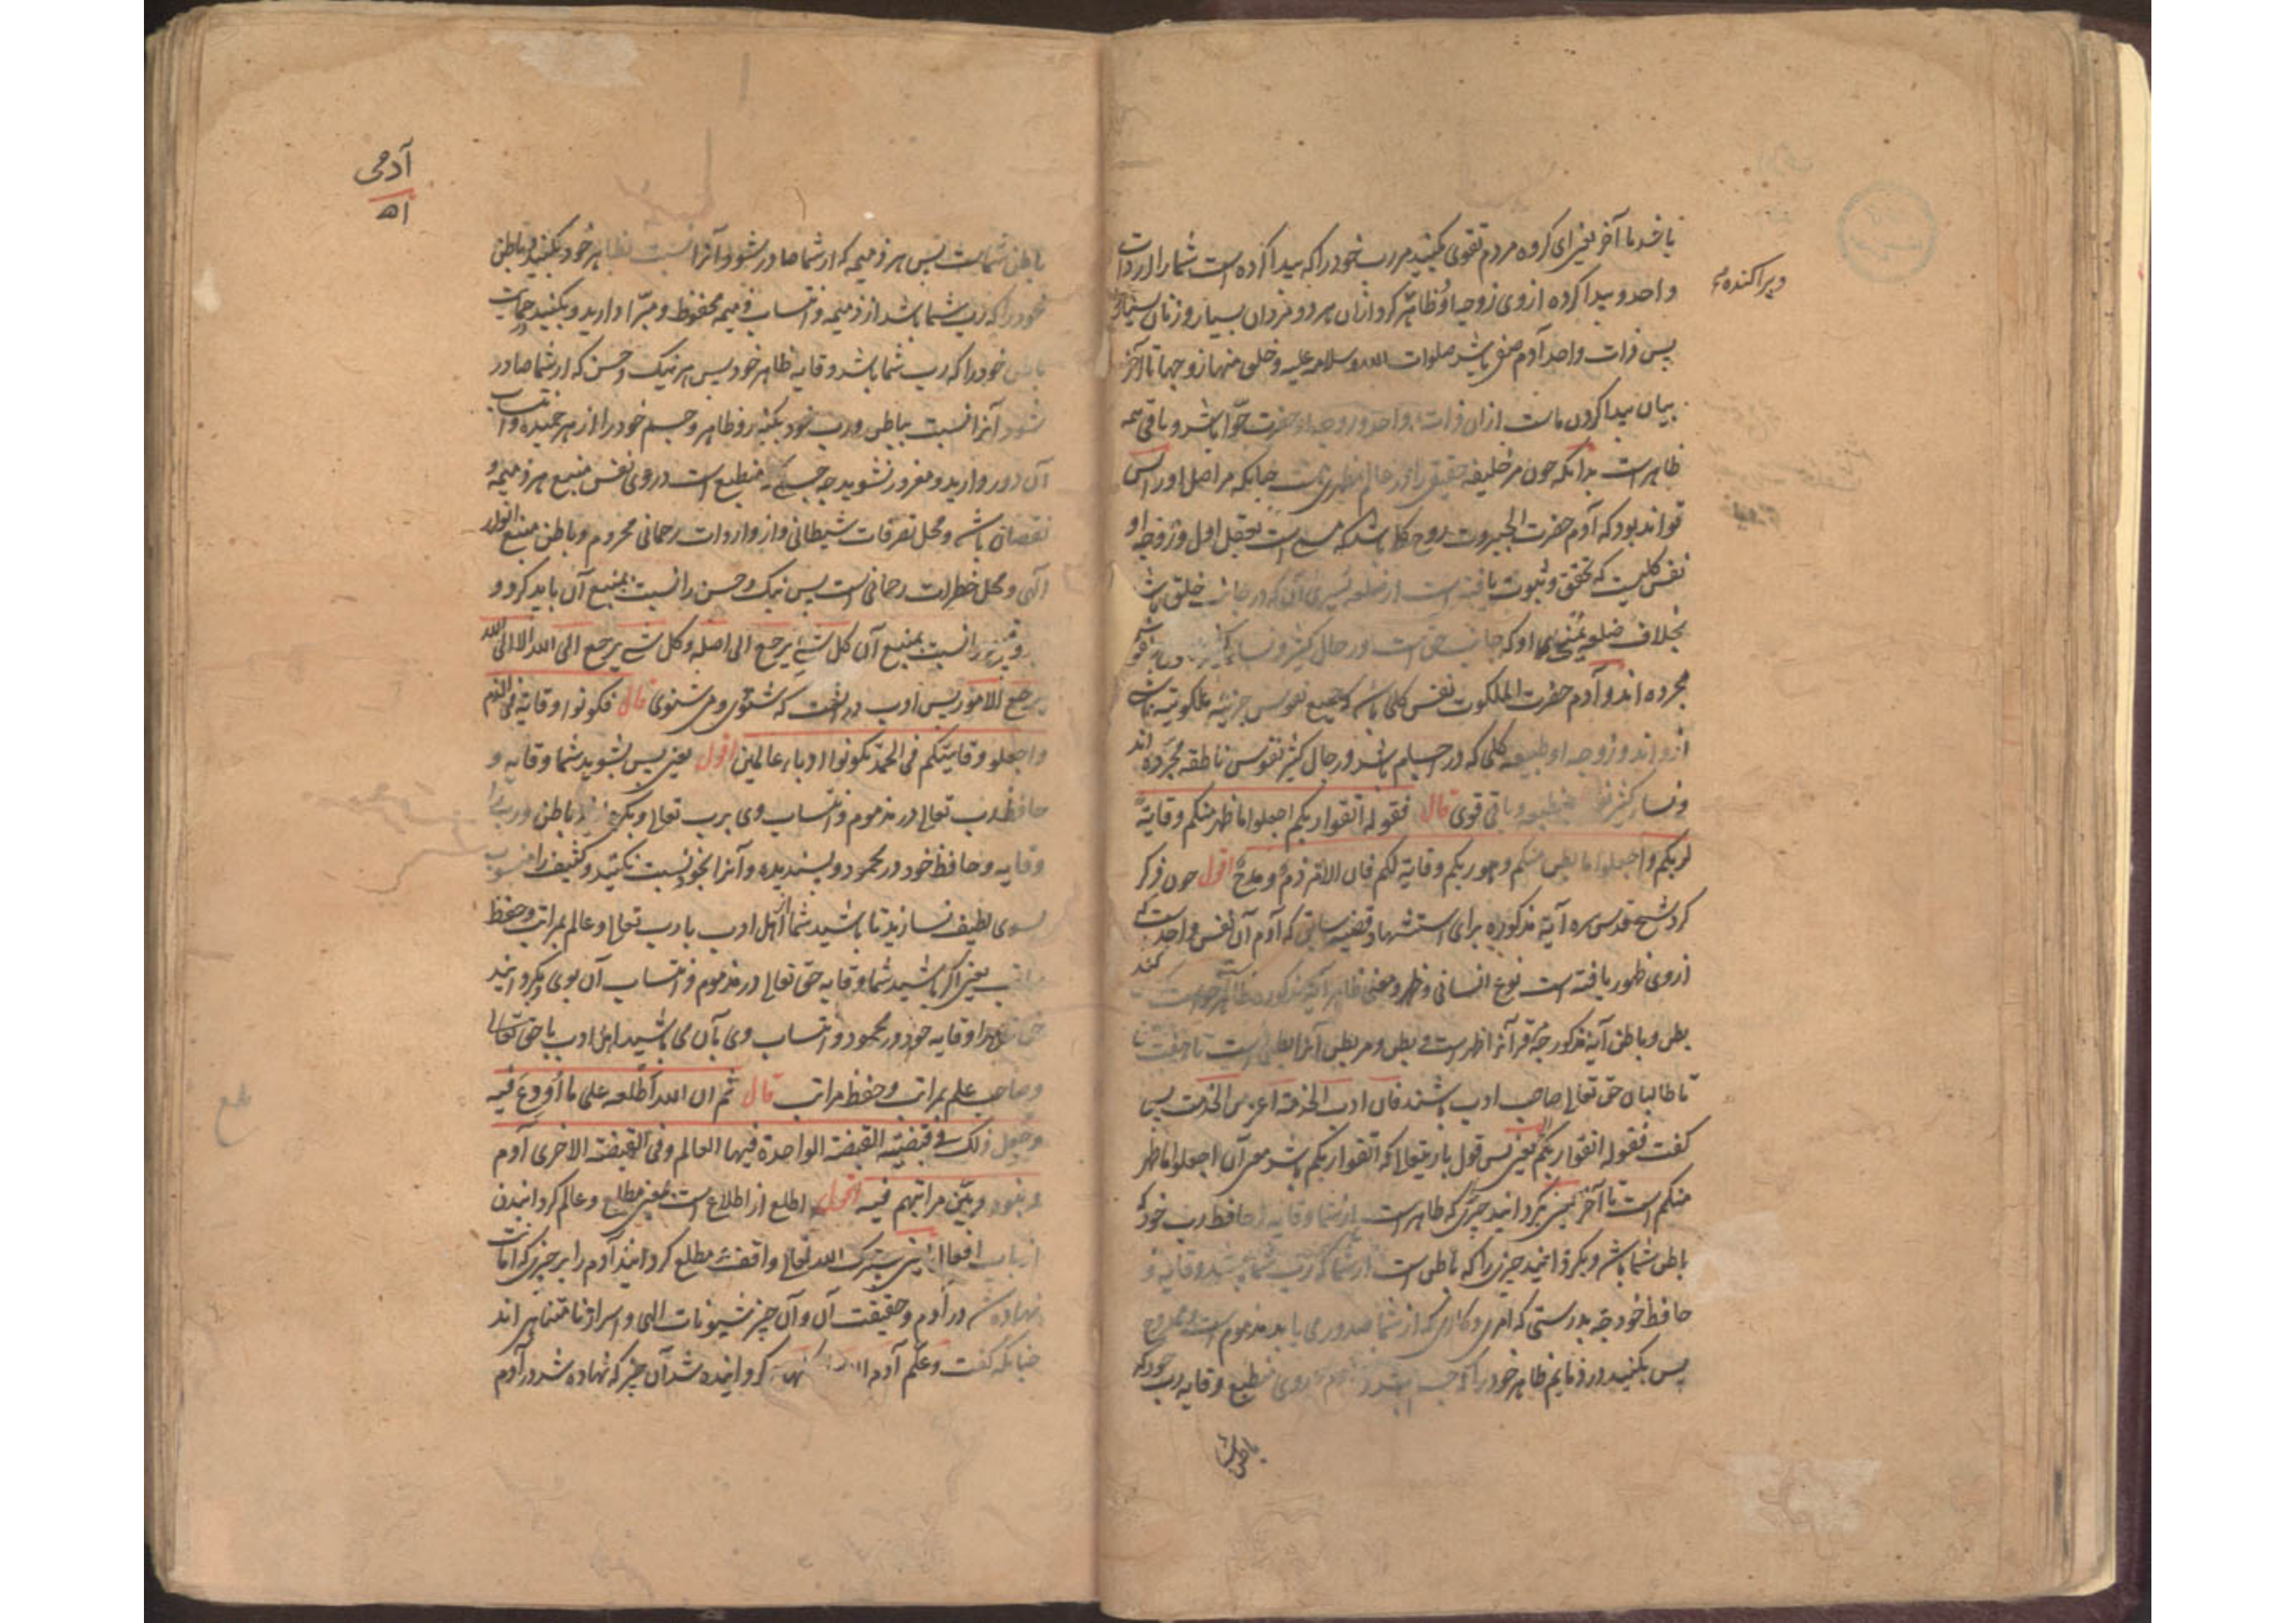 یا خد تا آخر یعنی ای گروه مردم تقوی بکنید مر رب خود را که پیدا کرده است شما را از ذات
و پراکنده
واحد و پیدا کرده از وی زوجه او و ظاهر کرد از آن هر دو مردان بسیار و زنان بسیار
پس ذات واحد آدم صفی باشد صلوات الله و سلامه علیه و خلق منها زوجها تا آخر
بیان پیدا کردن ماست از آن ذات واحد و زوجه او حضرت حوا باشد و باقی همه
ظاهر است بدانکه چون مر خلیفه حقیقی را در هر عالم مظهریست چنانکه مر اصل او را پس
تواند بود که آدم حضرت الجبروت روح کلی باشد که مسمی است بعقل اول و زوجه او
نفس کلیست که تحقق و ثبوت یافته است از ضلعه یسری آن که در جانب خلق باشد
بخلاف ضلع یمنی او که جانب حق است و رجال کثیر و نساء
مجرده اند و آدم حضرت الملکوت نفس کلی باشد که جمیع نفوس جزئیه ملکوتیه
ازو اند و زوجه او طبیعه کلی که در اجسام باشد و رجال کثیر نفوس ناطقه مجرده اند
و نساء کثیر نفوس منطبعه و باقی قوی قال فقوله اتقوا ربکم اجعلوا ما ظهر منکم وقایة
لربکم و اجعلوا ما بطن منکم و هو ربکم وقایة لکم فان الامر ذم و مدح اقول چون ذکر
کرد شیخ قدس سره آیة مذکوره برای استشهاد قضیه سابق که آدم آن نفس واحد است که
از وی ظهور یافته است نوع انسانی و ظهر و معنی ظاهر آیه مذکوره ظاهر
بطن و باطن آیه مذکور چه قرآن را ظهر است و بطن و مر بطن آنرا بطن است تا هفت
تا طالبان حق تعالی صاحب ادب باشند فان ادب الخدمة اعز من الخدمت پس
گفت فقوله اتقوا ربکم یعنی پس قول باریتعالی که اتقوا ربکم باشد معنی آن اجعلوا ما ظهر
منکم است تا آخر یعنی بگردانید چیزی که ظاهر است از شما وقایه و حافظ رب خود که
باطن شما باشد و بگردانید چیزی را که باطن است از شما که رب شما باشد وقایه و
حافظ خود چه بدرستی که امری و کاری که از شما صدور می یابد مذموم است و ممدوح
پس بکنید در ذمایم ظاهر خود را که جسد باشد وقایه رب خود که
باطن
آدمی
۵۱
باطن شماست پس هر ذمیمه که از شما صادر شود آنرا نسبت بظاهر خود بکنید و باطن
خود را که رب شما باشد از ذمیمه و انتساب ذمیمه محفوظ و مبرا دارید و بکنید در حمایت
باطن خود را که رب شما باشد وقایه ظاهر خود پس هر نیک و حسن که از شما صادر
شود آنرا نسبت بباطن و رب خود بکنید و ظاهر و جسم خود را از هر حمیده و انتساب
آن دور دارید و مغرور نشوید چه جسمی که منطبع است در وی نفس منبع هر ذمیمه و
نقصان باشد و محل تصرفات شیطانی و از واردات رحمانی محروم و باطن منبع انوار
الهی و محل خطرات رحمانی است پس نیک و حسن را نسبت بمنبع آن باید کرد و
نسبت بمنبع آن کل شیء یرجع الی اصله و کل شیء یرجع الی الله الا الی الله
یرجع الامور پس ادب در قال فکونوا وقایته فی الذم
و اجعلوه وقایتکم فی الحمد تکونوا ادباء عالمین اقول یعنی پس بشوید شما وقایه و
حافظ رب تعالی در مذموم و انتساب وی برب تعالی و بگردانید باطن و رب را
وقایه و حافظ خود در محمود و پسندیده و آنرا بخود نسبت نکنید و کثیف را منسوب
بسوی لطیف نسازید تا باشید شما از اهل ادب با رب تعالی و عالم بمراتب و حفظ
مراتب یعنی اگر باشید شما وقایه حق تعالی در مذموم و انتساب آن بوی و بگردانید
حق تعالی را وقایه خود در محمود و انتساب وی بآن می باشید اهل ادب با حق تعالی
و صاحب علم بمراتب و حفظ مراتب قال ثم ان الله اطلعه علی ما اودع فیه
و جعل ذلک فی قبضتیه القبضة الواحدة فیها العالم و فی القبضة الاخری آدم
و بنوه و بین مراتبهم فیه اقول اطلع از اطلاع است یعنی مطلع و عالم گردانیدن
از باب افعال یعنی بدرستی که الله تعالی واقف و مطلع گردانید آدم را بر چیزی که امانت
نهاده شد در آدم و حقیقت آن و آن چیز شیونات الهی و اسرار نامتناهی اند
چنانکه گفت و علم آدم الاسماء کلها گردانیده شد آن چیز که نهاده شد در آدم